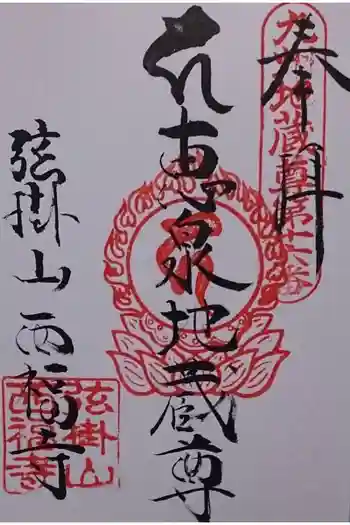 奉拝
九州地蔵尊第十六番
恵泉地蔵尊
弦掛山西福寺
弦掛山
西福寺